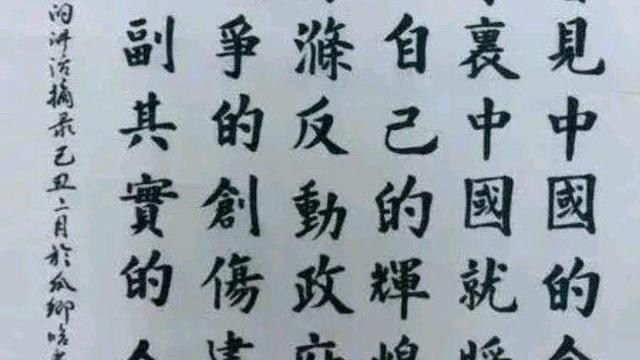 見中國的
裏中國就
自己的輝煌
滌反動政府
爭的創傷建
副其實的
的讲话摘录己丑二月於瓜鄉